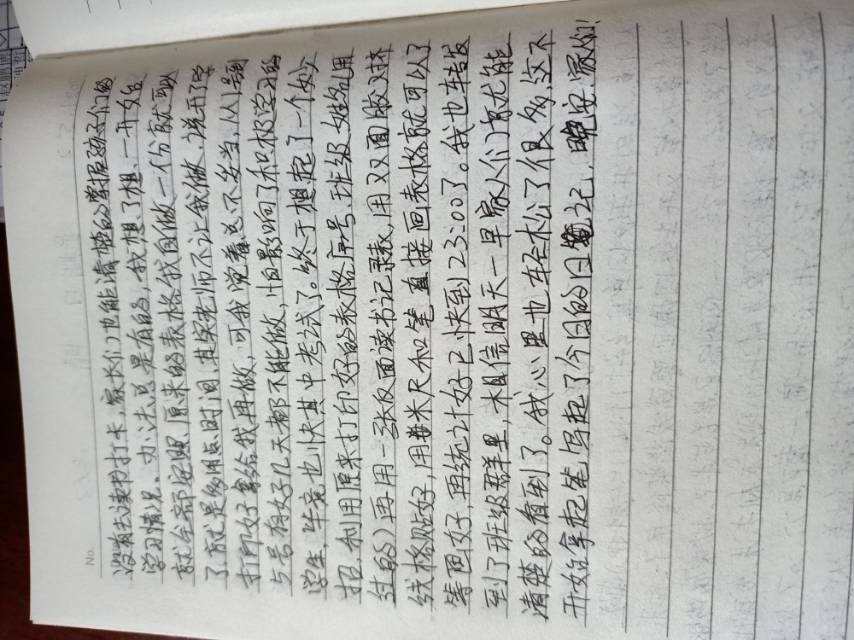 No.
没有去读书打卡,家长们也能清楚的掌握孩子们的
学习情况。办法总是有的,我想了想,一开始
就全部安照原来的表格我自做一份就可以
了就是多用点时间,其实老师不让我做,说开了学
打印好拿给我再做,可我觉着总不妥当,从1号到
5号有好几天都不能做,怕影响了积极学习的
学生,毕竟也快其中考试了。终于想起了一个妙
招,利用原来打印好的表格序号,班级,姓名,(用
过的)再用一张反面读书记录表,用双面胶对林
线格贴好,用米尺和笔直接画表格就可以了
等画好,再统计好已快到23:00了。我也转发
到了班级群里,相信明天一早家人们就能
清楚的看到了。我心里也轻松了很多,这不
开始拿起笔写起了今日的日记,晚安,家人们!